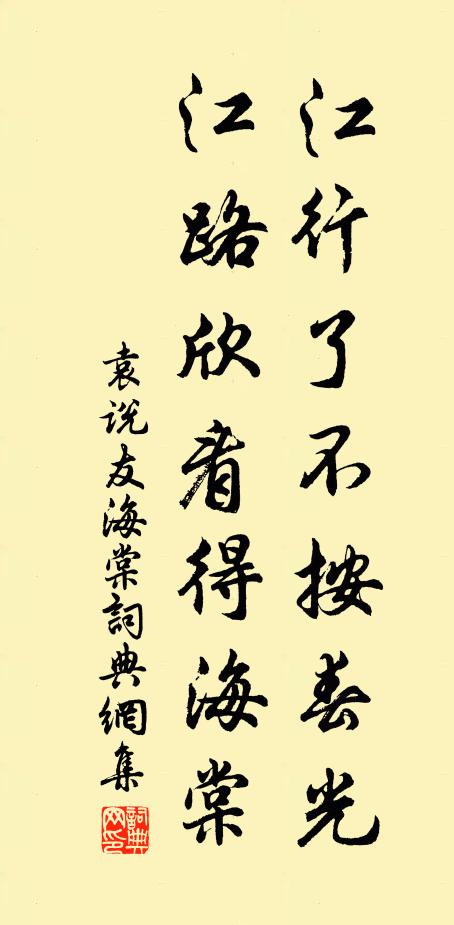 江行了不按春光
江路欣看得海棠
袁说友海棠詞典網集
詞典網印